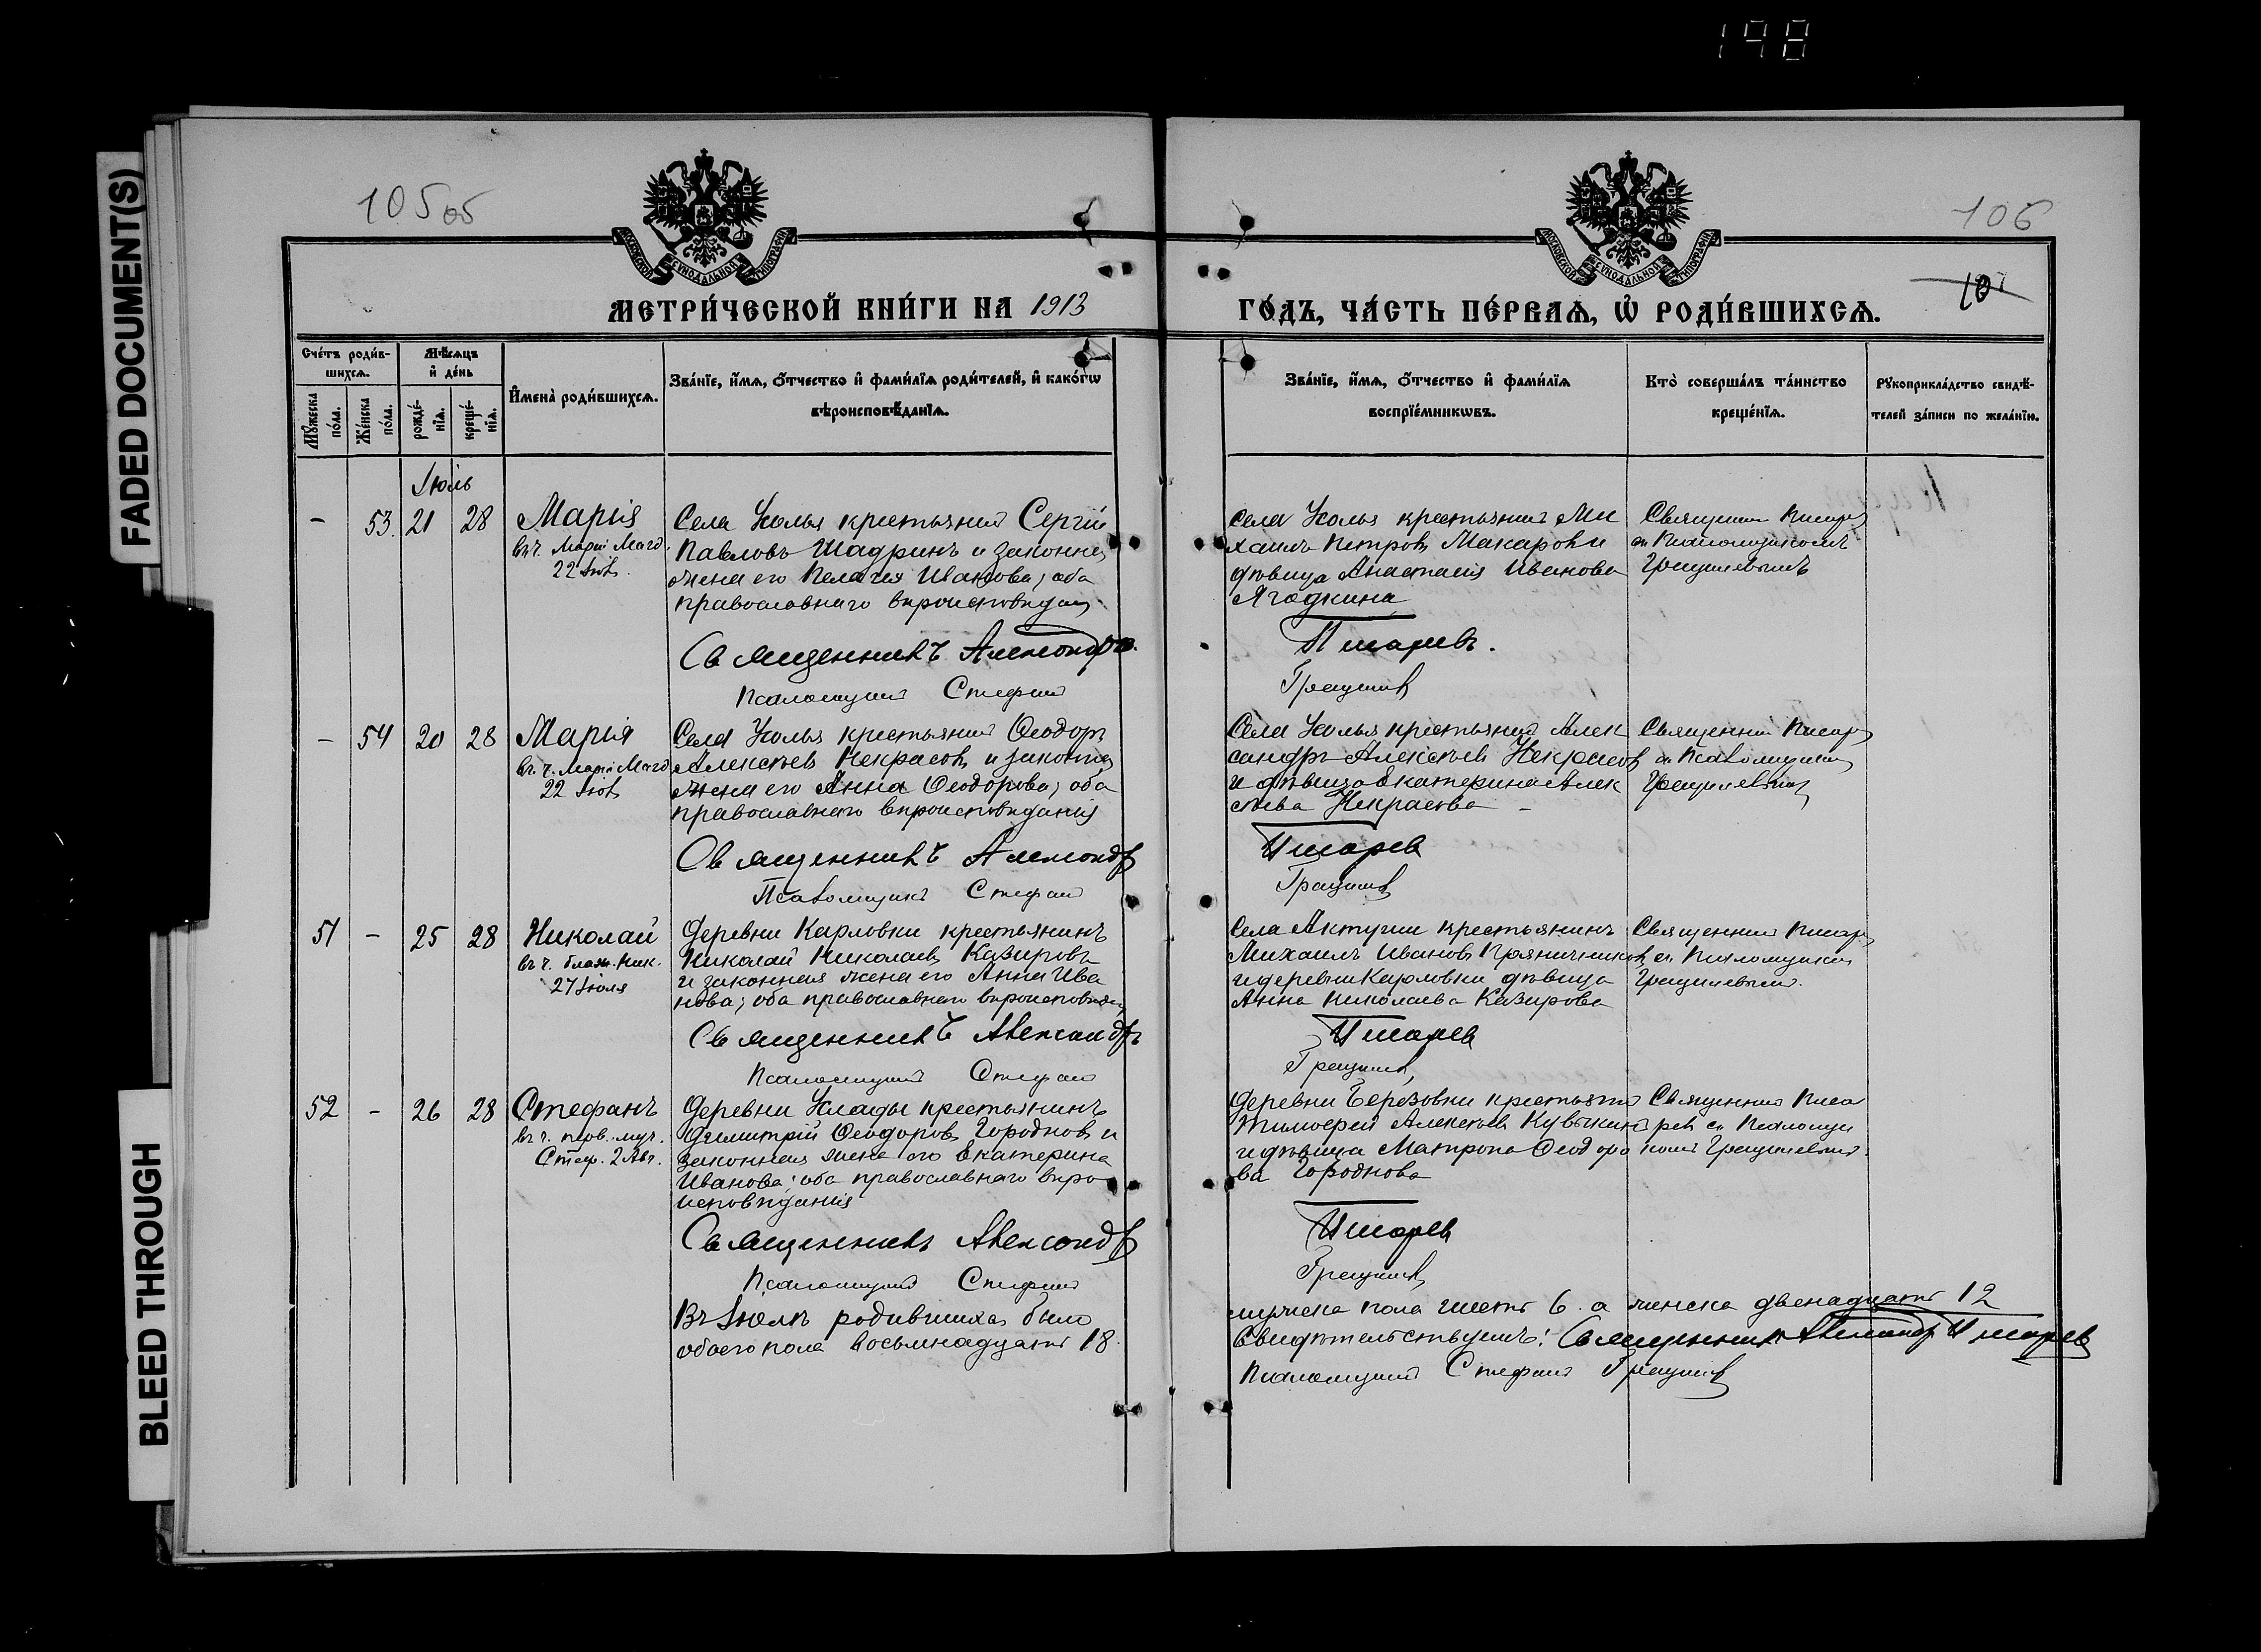 198
FADED DOCUMENT(S)
BLEED THROUGH
105 об
106
МОСКОВСКОЙ СѴНОДАЛЬНОЙ ТИПОГРАФІИ
МОСКОВСКОЙ СѴНОДАЛЬНОЙ ТИПОГРАФІИ
МЕТРИ́ЧЕСКОЙ КНИ́ГИ НА 1913
ГО́ДЪ, ЧА́СТЬ ПЕ́РВАѦ, Ѽ РОДИ́ВШИХСѦ.
Сче́тъ роди́в-
шихсѧ.
Мѣ́сѧцъ
и҆ де́нь
Мꙋ́жеска по́ла.
Же́нска по́ла.
рожде́-нїѧ.
креще́-нїѧ.
И҆мена̀ роди́вшихсѧ.
Зва́нїе, и҆́мѧ, ѻ҆́тчество и҆ фами́лїѧ роди́телей, и҆ како́гѡ
вѣроисповѣ́данїѧ.
Зва́нїе, и҆́мѧ, ѻ҆́тчество и҆ фами́лїѧ
воспрїе́мникѡвъ.
Кто̀ соверша́лъ та́инство
креще́нїѧ.
Рꙋкоприкла́дство свидѣ́-
телей за́писи по жела́нїю.
Іюль
- 53. 21 28 Марія
въ ч. Маріи Магд.
22 Іюл.
Села Усолья крестьянинъ Сергій
Павловъ Шадринъ и законная
жена его Пелагея Иванова, оба
православнаго вѣроисповѣдан.
Священникъ Александръ
Псаломщикъ Стефанъ
Села Усолья крестьянинъ Ми
хаилъ Петровъ Макаровъ и
дѣвица Анастасія Иванова
Ягодкина
Писаревъ.
Грецилевъ
Священникъ Писарев
съ Псаломщикомъ
Грецилевымъ
- 54 20 28 Марія
въ ч. Маріи Магд
22 Іюл
Села Усолья крестьянинъ Ѳеодоръ
Алексѣевъ Некрасовъ и законная
жена его Анна Ѳеодорова, оба
православнаго вѣроисповѣданія
Священникъ Александр
Псаломщикъ Стефанъ
Села Усолья крестьянинъ Алек
сандръ Алексѣевъ Некрасов
и дѣвица Екатерина Алек
сѣева Некрасова -
Писарев
Грецилев
Священникъ Писарев
съ Псаломщиком
Грецилевым
51 - 25 28 Николай
въ ч. блаж. Ник.
27 Іюля
Деревни Карловки крестьянинъ
Николай Николаевъ Казировъ
и законная жена его Анна Ива
нова, оба православнаго вѣроисповѣдан
Священникъ Александръ
Псаломщикъ Стефанъ
Села Актуши крестьянинъ
Михаилъ Ивановъ Пряничников
и деревни Карловки дѣвица
Анна Николаева Казирова
Писарев
Грецилев
Священникъ Писарев
съ Псаломщиком
Грецилевымъ.
52 - 26 28 Стефанъ
въ ч. перв. муч.
Стеф. 2 Авг.
Деревни крестьянинъ
Димитрій Ѳеодоровъ Городновъ и
законная жена его Екатерина
Иванова; оба православнаго вѣро
исповѣданія
Священникъ Александр
Псаломщикъ Стефанъ
Деревни Березовки крестьянин
Тимоѳей Алексѣевъ Кувыкинъ
и дѣвица Матрона Ѳеодоро
ва Городнова
Писарев
Грецилев
Священникъ Писа
рев съ Псаломщи
комъ Грецилевымъ.
Въ Іюлѣ родившихся было
обоего пола восьмнадцать 18.
мужска пола шесть 6. а женска двенадцать 12
Свидѣтельствуемъ: Священникъ Александр Писарев
Псаломщикъ Стефанъ Грецилев